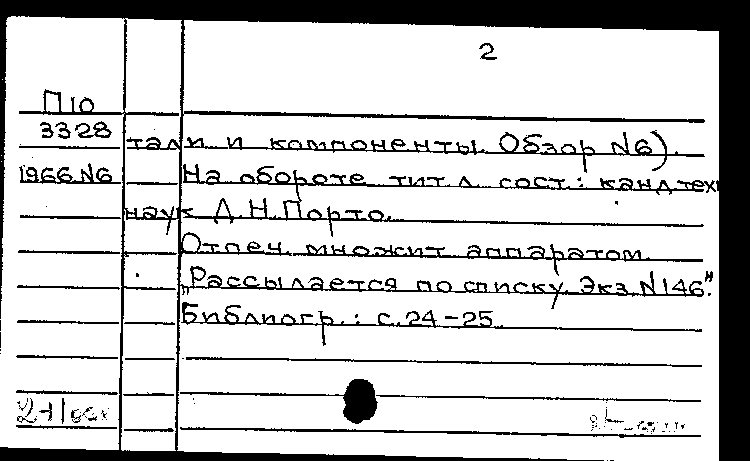 2
П10
3328
тали и компоненты. Обзор N6).
1966 N6 На обороте тит. л. сост.: канд. тех
наук Д.Н. Порто.
Отпеч. множит. аппаратом.
„Рассылается по списку. Экз. N146".
Библиогр.: с. 24-25.